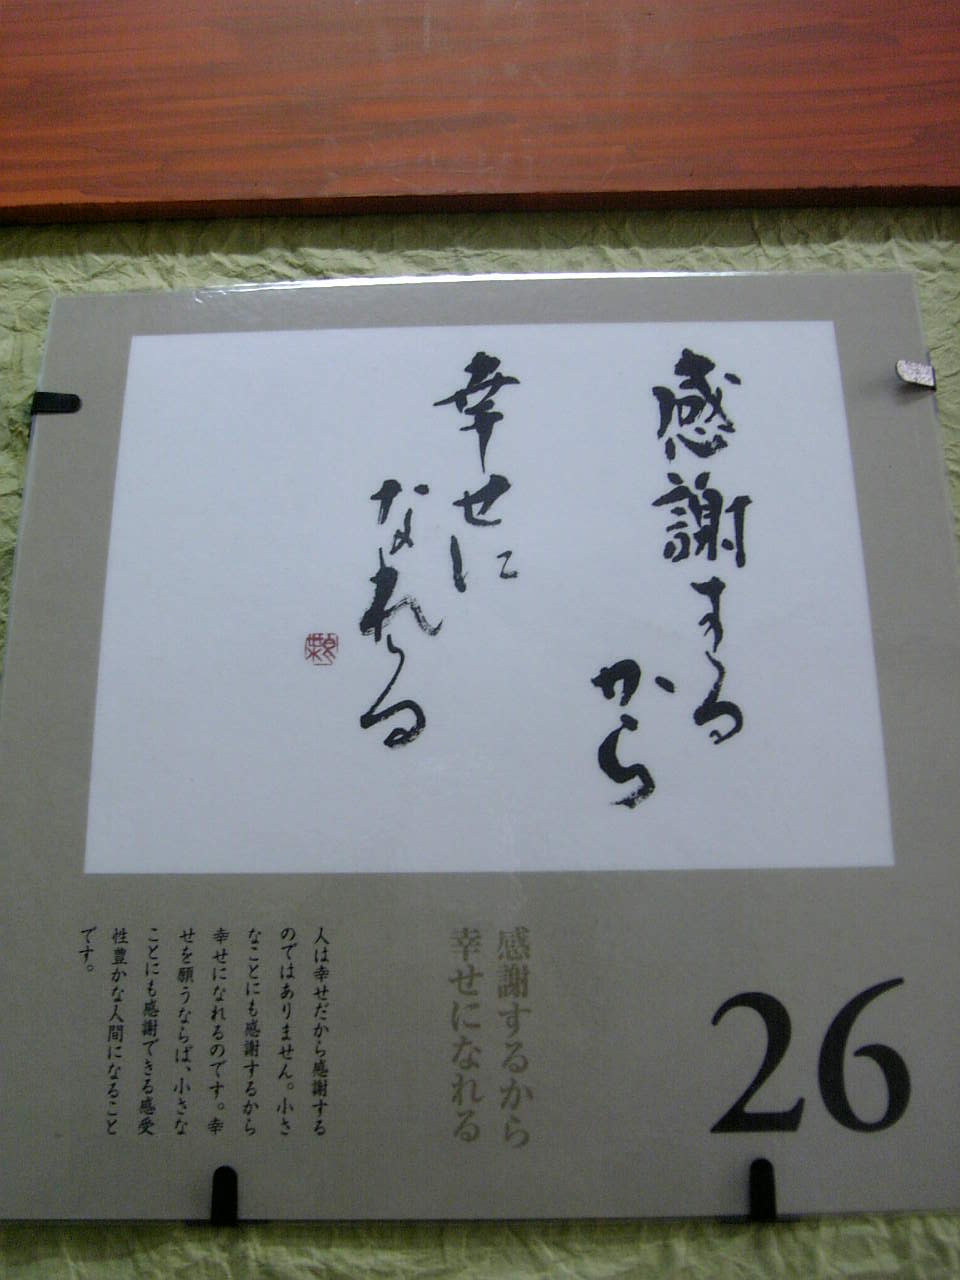 感謝する
から
幸せに
なれる
26
感謝するから
幸せになれる
人は幸せだから感謝する
のではありません。小さ
なことにも感謝するから
幸せになれるのです。幸
せを願うならば、小さな
ことにも感謝できる感受
性豊かな人間になること
です。